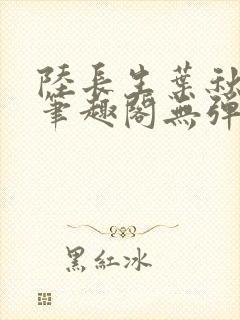 陸長生葉秋
筆趣閣無彈
黑紅冰